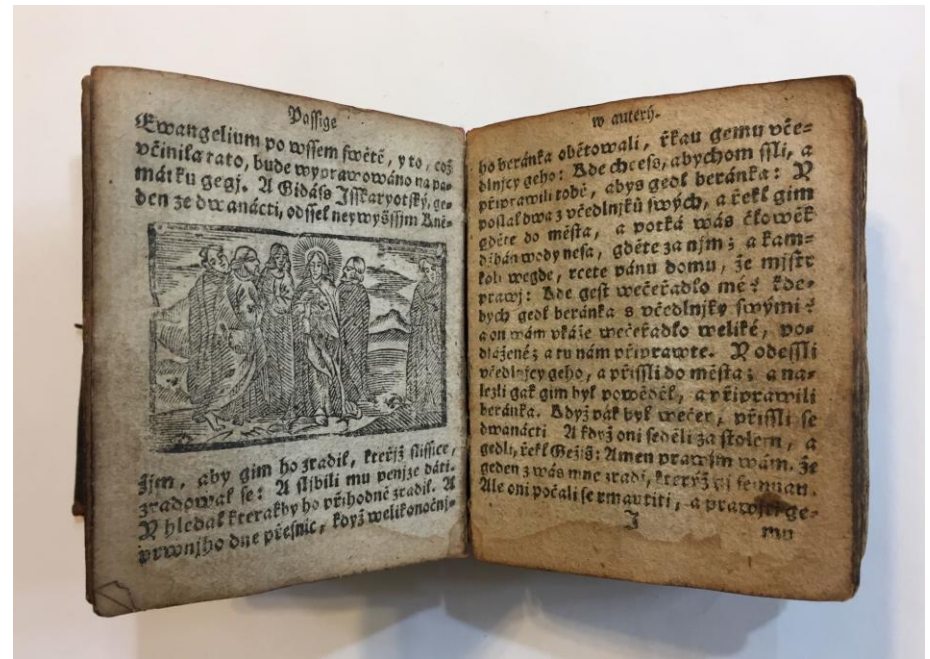 Passige
Ewangelium po wssem swětě, y to, což
včinila tato, bude wyprawowáno na pa=
mátku gegj. A Gidáss Isskaryotský, ge=
den ze dwanácti, odssel neywyšssjm Kně=
žjm, aby gim ho zradil, kteřjž slissice,
zradowal se: A sljbili mu penjze dáti.
Y hledal kterakby ho přjhodně zradil. A
prwnjho dne přesnic, když welikonočnj=
w auterý.
ho beránka obětowali, řkau gemu vče=
dlnjcy geho: Kde chcess, abychom ssli, a
připrawili tobě, abys gedl beránka: Y
poslal dwa z včedlnjků swých, a řekl gim
gděte do města, a potká wás čłowěk
džbán wody nesa, gděte za njm; a kam=
koli wegde, rcete pánu domu, že mjstr
prawj: Kde gest wečeřadło mé? kde=
bych gedl beránka s včedlnjky swými?
a on wám vkáže wečeřadło weliké, po=
dlážené; a tu nám připrawte. Y odessli
včedlnjcy geho, a přissli do města; a na=
lezli gak gim byl powěděl, a připrawili
beránka. Když pak byl wečer, přissli se
dwanácti. A když oni seděli za stolem, a
gedli, řekl Gežjš: Amen prawjm wám. že
geden z wás mne zradj, kterýž gj semnau.
Ale oni počali se rmautiti, a prawiti ge=
J
mu